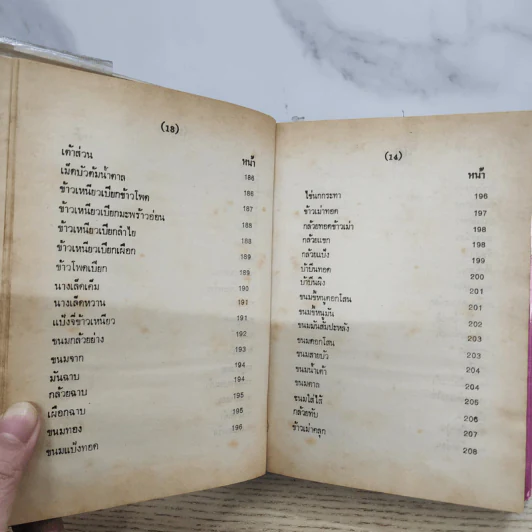 (13)
หน้า
เต้าส่วน 186
เม็ดบัวต้มน้ำตาล 186
ข้าวเหนียวเปียกข้าวโพด 187
ข้าวเหนียวเปียกมะพร้าวอ่อน 188
ข้าวเหนียวเปียกลำไย 188
ข้าวเหนียวเปียกเผือก 189
ข้าวโพดเปียก 189
นางเล็ดเค็ม 190
นางเล็ดหวาน 191
แป้งจี่ข้าวเหนียว 191
ขนมกล้วยย่าง 192
ขนมจาก 193
มันฉาบ 194
กล้วยฉาบ 194
เผือกฉาบ 195
ขนมทอง 195
ขนมแป้งทอด 196
(14)
หน้า
ไข่นกกระทา 196
ข้าวเม่าทอด 197
กล้วยทอดข้าวเม่า 198
กล้วยแขก 198
กล้วยแป้ง 199
บ้าบิ่นทอด 200
บ้าบิ่นผิง 201
ขนมขี้หนูดอกโสน 201
ขนมขี้หนูมัน 202
ขนมมันสัมปะหลัง 203
ขนมดอกโสน 203
ขนมสายบัว 204
ขนมน้ำเต้า 204
ขนมตาล 205
ขนมใส่ไส้ 206
กล้วยทับ 207
ข้าวเม่าคลุก 208